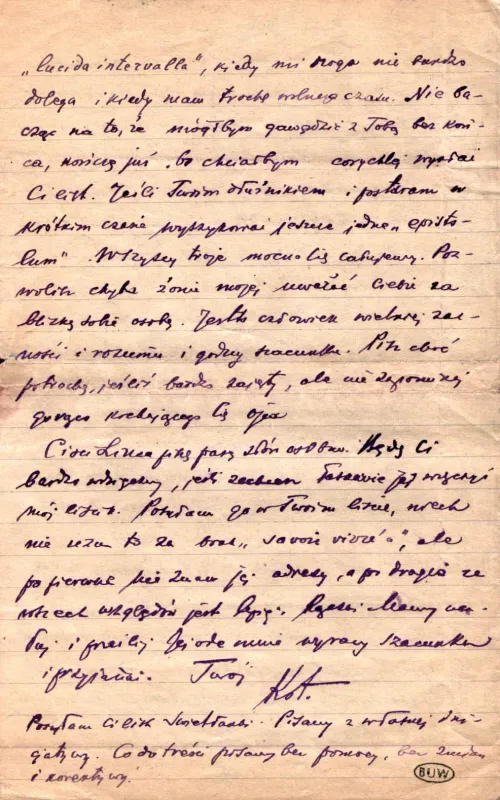 „lucida intervalla", kiedy mi noga nie bardzo
dolega i kiedy mam trochę wolnego czasu. Nie ba-
cząc na to, że mógłbym gawędzić z Tobą bez koń-
ca, kończę już bo chciałbym corychlej wysłać
Ci list. Jeśli Twoim dłużnikiem i postaram w
krótkim czasie wyszykować jeszcze jedne „episto-
lum". Wszyscy troje mocno Cię całujemy. Poz-
wolisz chyba żonie mojej uważać Ciebie za
blizką sobie osobę. Jest to człowiek wielkiej zac-
ności i rozumu i godny szacunku. Pisz choć
potrochę, jeśliś bardzo zajęty, ale nie zapominaj
gorąco kochającego Cię ojca
Cioci piszę parę słów osobno. Będę Ci
bardzo wdzięczny, jeśli zechcesz łaskawie jej wręczyć
mój list. Posyłam go w Twoim liście, niech
nie uzna to za brak „savoir vivre'a", ale
po pierwsze nie znam jej adresu, a po drugie ze
wszech względów jest lepiej. Mamy
i jej ode mnie wyrazy szacunku
i przyjaźni. Twój
Kot.
Posyłam Ci list Świetlanki. Pisany z własnej ini-
cjatywy. Co do treści pisany bez pomocy, bez zmian
i korektywy.
BUW